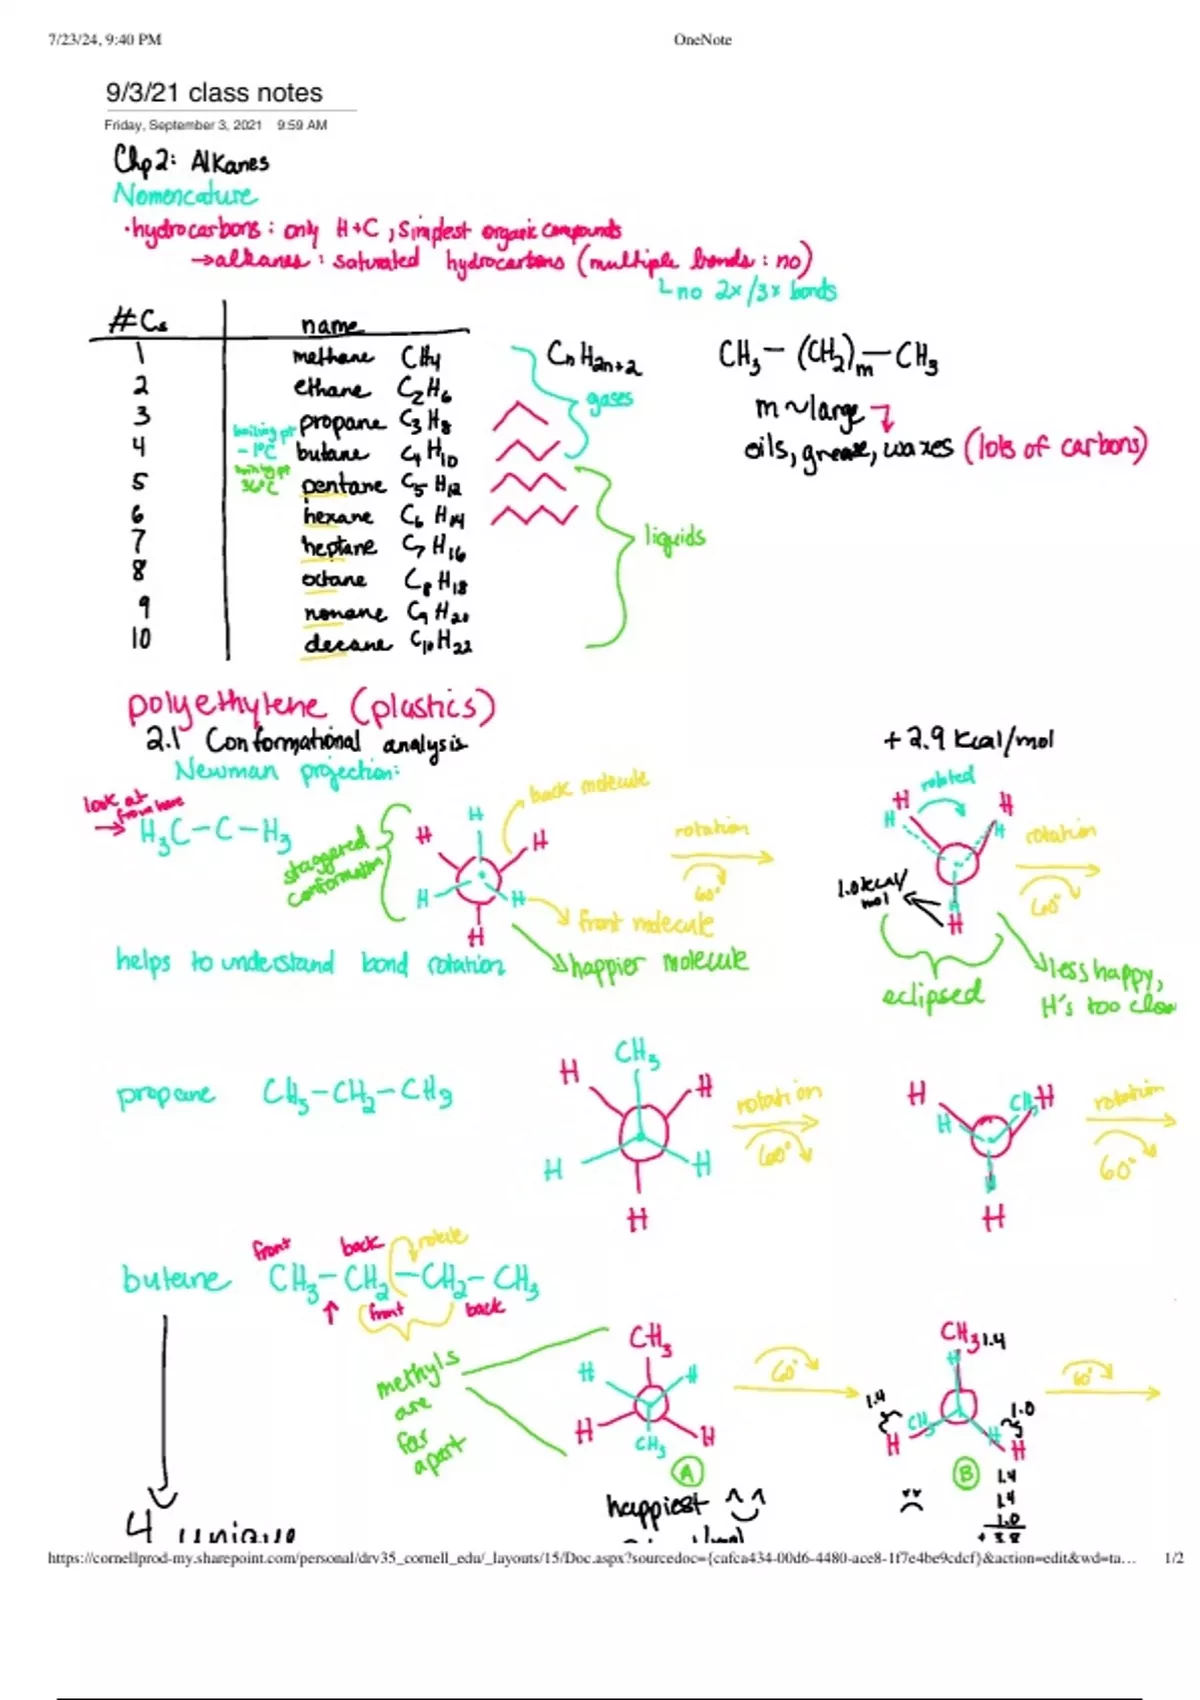 7/23/24, 9:40 PM OneNote
9/3/21 class notes
Friday, September 3, 2021 9:59 AM
Chp 2: Alkanes
Nomencature
·hydrocarbons: only H+C, simplest organic compounds
→alkanes: saturated hydrocarbons (multiple bonds: no)
└no 2x/3x bonds
#Cs name
1 methane CH4
2 ethane C2H6
3 propane C3H8
4 butane C4H10
5 pentane C5H12
6 hexane C6H14
7 heptane C7H16
8 octane C8H18
9 nonane C9H20
10 decane C10H22
boiling pt
-1°C
boiling pt
36°C
CnH2n+2
gases
liquids
CH3-(CH2)m-CH3
m~large
oils, grease, waxes (lots of carbons)
polyethylene (plastics)
2.1 Conformational analysis
+2.9 kcal/mol
Newman projection:
look at
from here
→H3C-C-H3
staggered
conformation
H
H H
H H
H
back molecule
front molecule
rotation
60°
happier molecule
rotated
H H
H H
H
H
1.0kcal/
mol
rotation
60°
eclipsed
less happy,
H's too close
helps to understand bond rotation
propane CH3-CH2-CH3
CH3
H H
H H
H
rotation
60°
H CH3H
H
H
H
rotation
60°
front back rotate
butane CH3-CH2-CH2-CH3
↑ front back
methyls
are
far
apart
CH3
H H
H H
CH3
A
happiest ^^
60°
CH3 1.4
H
1.4 1.0
CH3 H
H H
B
1.4
1.4
1.0
+3.8
60°
4 unique
https://cornellprod-my.sharepoint.com/personal/drv35_cornell_edu/_layouts/15/Doc.aspx?sourcedoc={cafca434-00d6-4480-ace8-1f7e4be9cdcf}&action=edit&wd=ta… 1/2